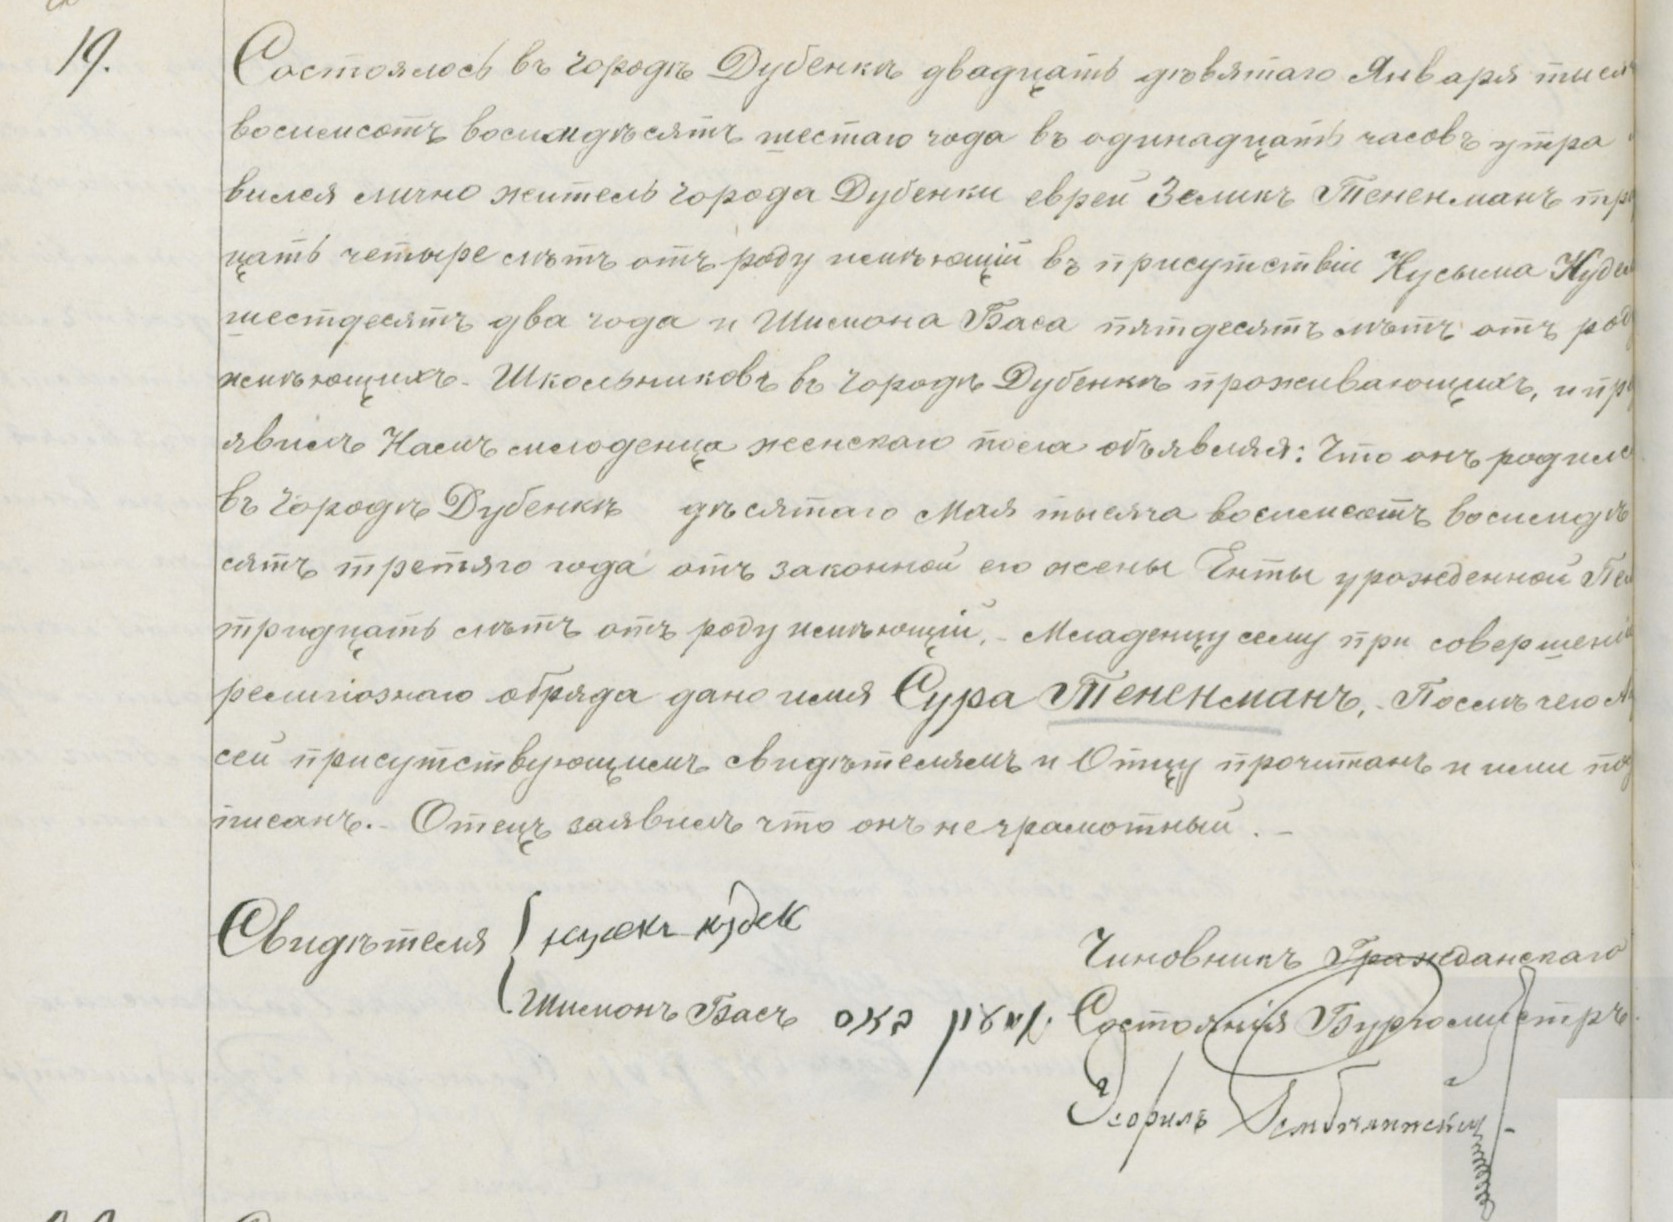 19.
Состоялось въ городѣ Дубенкѣ двадцать дѣвятаго Января тыся
восемсотъ восемдѣсятъ шестаго года въ одинадцать часовъ утра
вился лично житель города Дубенки еврей Зеликъ Тененманъ три
цать четыре лѣтъ отъ роду имѣющій въ присутствіи Нусыма Кудек
шестдесятъ два года и Шимона Баса пятдесятъ лѣтъ отъ род
имѣющихъ. Школьниковъ въ городѣ Дубенкѣ проживающихъ, и пр
явилъ Намъ младенца женскаго пола объявляя: Что онъ родилс
въ городѣ Дубенкѣ дѣсятаго Мая тысяча восемсотъ восемдѣ
сятъ третяго года отъ законной его жены Енты урожденной
тридцать лѣтъ отъ роду имѣющій. - Младенцу сему при совершеніи
религіознаго обряда дано имя Сура Тененманъ. - Послѣ чего А
сей присутствующимъ свидѣтелямъ и Отцу прочитанъ и ими по
писанъ. - Отецъ заявилъ что онъ неграмотный. -
Свидѣтеля
Шимонъ Басъ שמעון באס
Чиновникъ Гражданскаго
Состоянія Бургомистръ